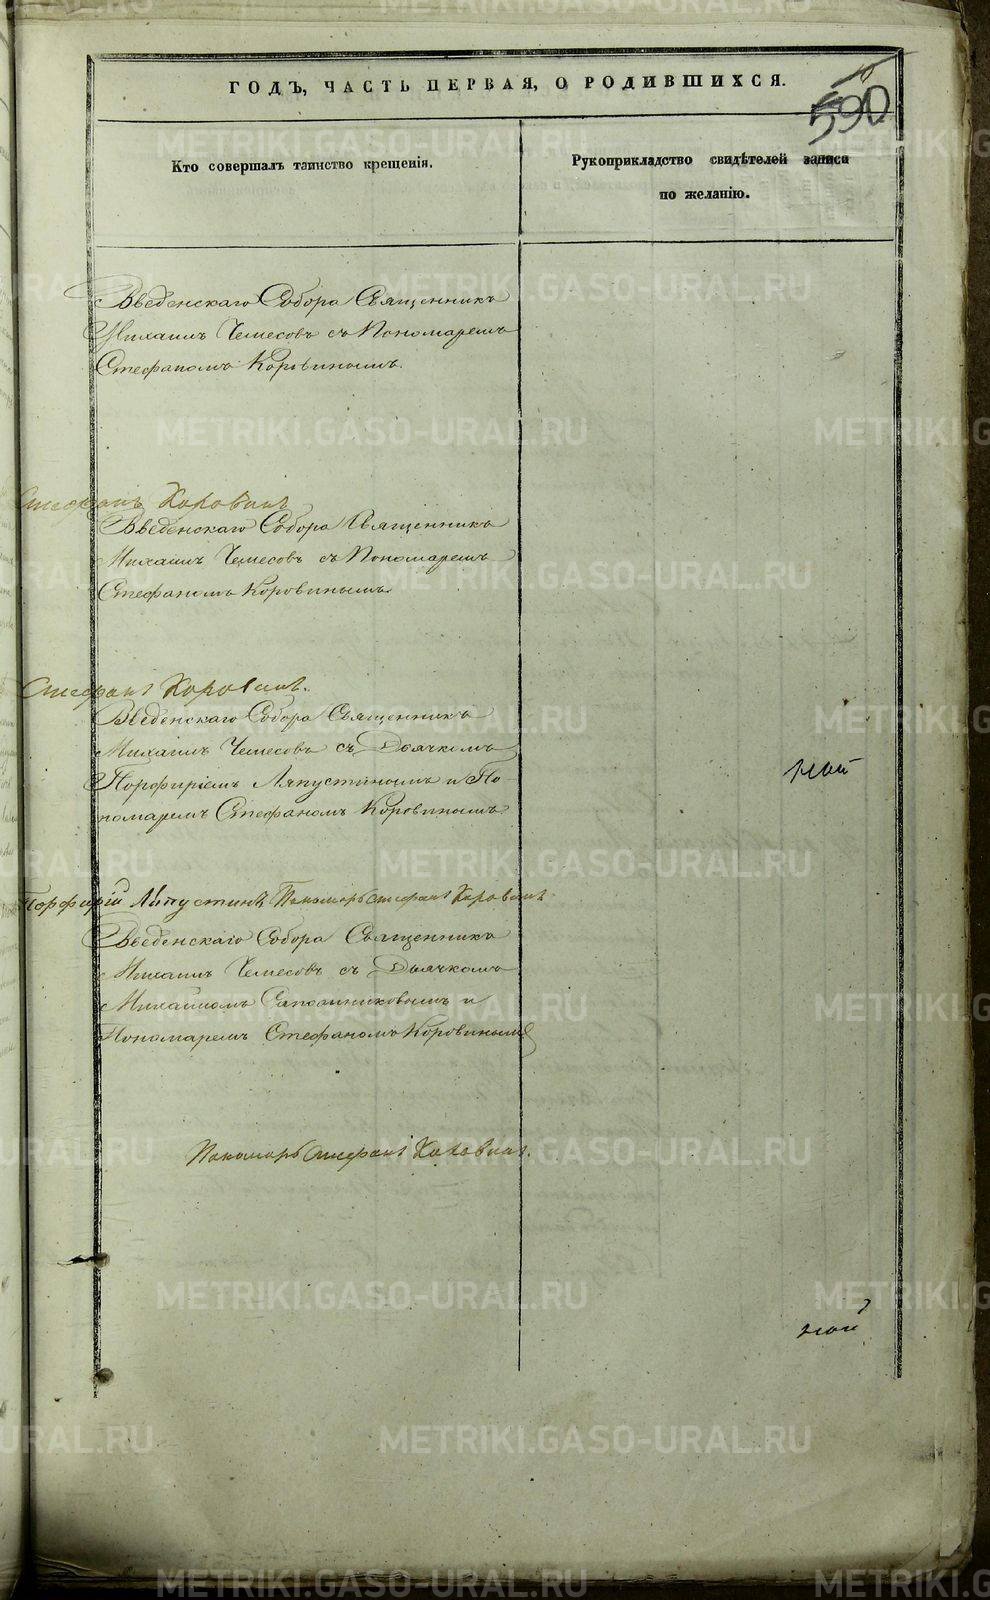 ГОДЪ, ЧАСТЬ ПЕРВАЯ, О РОДИВШИХСЯ.
10
590
Кто совершалъ таинство крещенія.
Рукоприкладство свидѣтелей записи
по желанію.
Введенскаго Собора Священникъ
Михаилъ Чемесовъ съ Пономаремъ
Стефаномъ Коровинымъ.
Стефанъ Коровинъ
Введенскаго Собора Священникъ
Михаилъ Чемесовъ съ Пономаремъ
Стефаномъ Коровинымъ
Стефанъ Коровинъ.
Введенскаго Собора Священникъ
Михаилъ Чемесовъ съ Дьячкомъ
Порфиріемъ Ляпустинымъ и По-
номаремъ Стефаномъ Коровинымъ
Порфирій Ляпустинъ Пономарь Стефанъ Коровинъ
Введенскаго Собора Священникъ
Михаилъ Чемесовъ съ Дьячкомъ
Михаиломъ Сапожниковымъ и
Пономаремъ Стефаномъ Коровинымъ
Пономарь Стефанъ Коровинъ.
METRIKI.GASO-URAL.RU